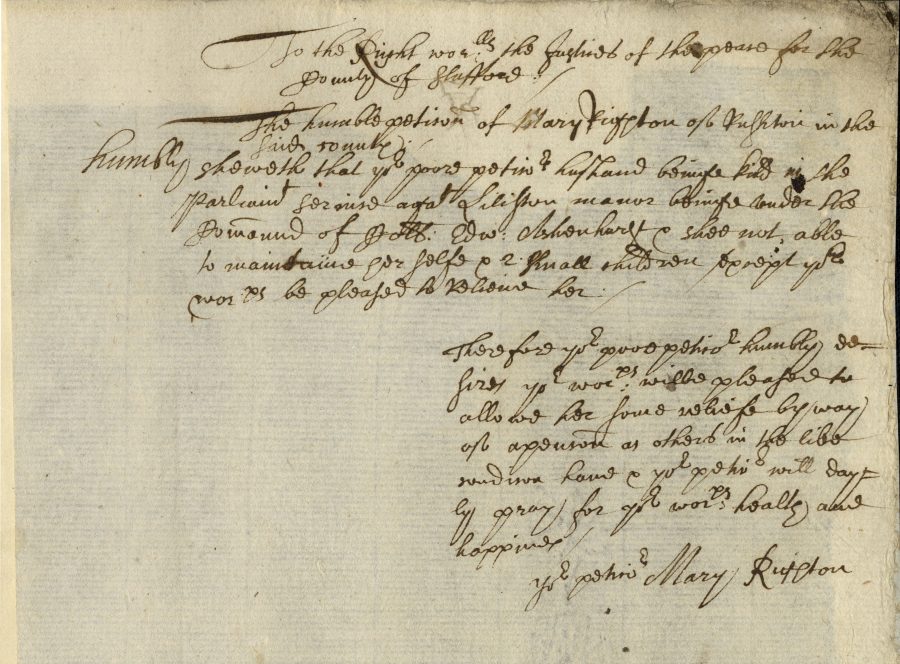 To the Right wor:lls the Justices of the peace for the
County of Stafford:
The humble petition of Mary Rushton of Rushton in the
said county
humbly sheweth that yor poore petinr husband beinge kild in the
Parliamt service agst Lilifton manor beinge under the
Comaund of Coll: Edw: Ashenhurst & shee not able
to maintaine her selfe & 2 small children except yor
wor:ps be pleased to relieve her:
Therefore yor poore petionr humbly de=
sires yor wor:ps wilbe pleased to
allowe her some reliefe by way
of a penson as others in the like
condicon have & yor petinr will day=
ly pray for yor wor:ps health and
happines
yor petinr Mary Rushton